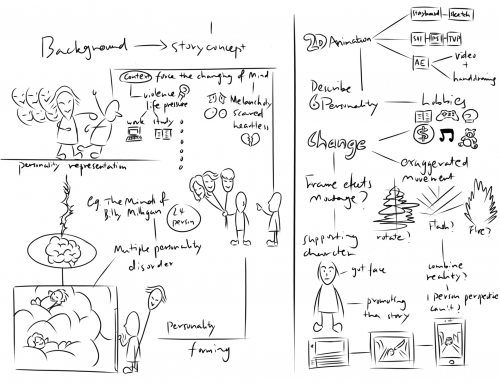 Background → story concept
context force the changing of Mind
violence
life pressure
work study
Melancholy
scared
heartless
personality representation
e.g. The Minds of
Billy Milligan
24
person
Multiple personality
disorder
personality
forming
2D Animation
storyboard
sketch
SAI
PS
TVP
AE
video
+
handdrawing
Describe
6 Personality
Hobbies
$
Change
exaggerated
movement
Frame effects
Montage?
rotate?
Flash?
Fire?
supporting
character
got fake
promoting
the story
combine
reality?
1 person perspective
can't?